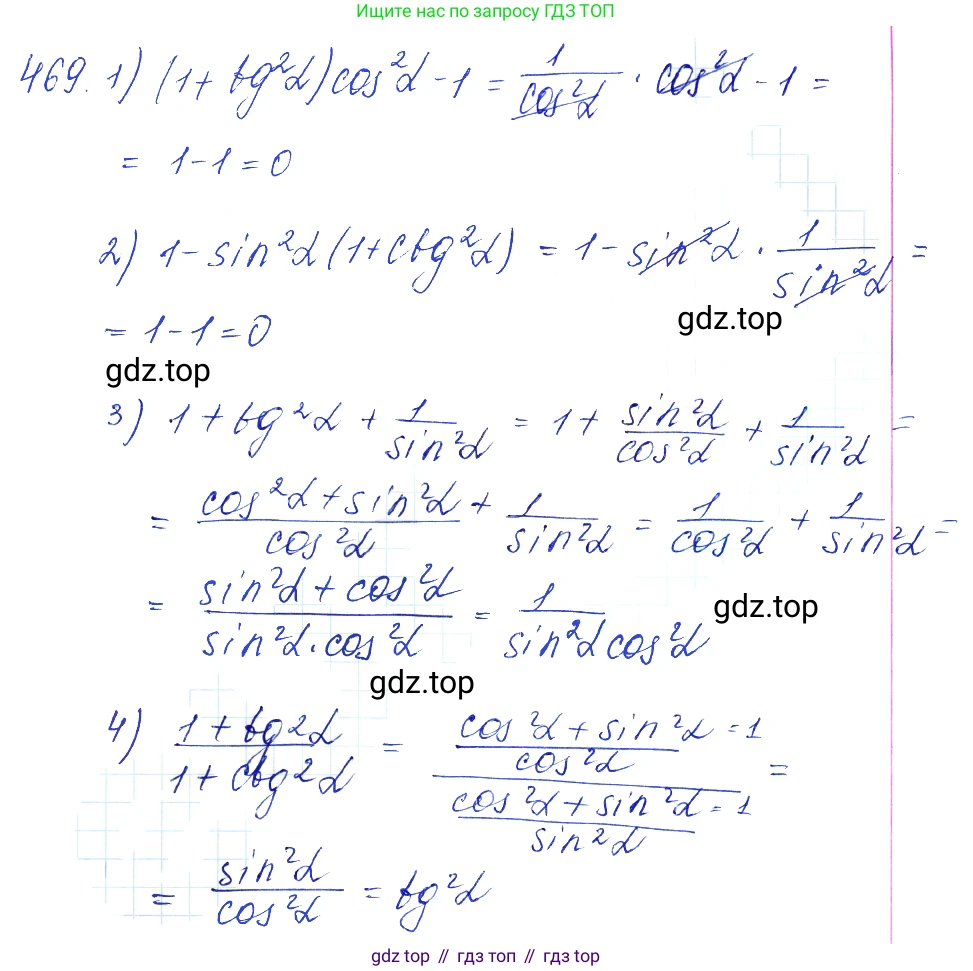 Ищите нас по запросу ГДЗ ТОП
469. 1) (1 + tg²α) cos²α - 1 = 1/cos²α · cos²α - 1 =
= 1 - 1 = 0
2) 1 - sin²α (1 + ctg²α) = 1 - sin²α · 1/sin²α =
gdz.top
= 1 - 1 = 0
gdz.top
3) 1 + tg²α + 1/sin²α = 1 + sin²α/cos²α + 1/sin²α =
= (cos²α + sin²α)/cos²α + 1/sin²α = 1/cos²α + 1/sin²α =
= (sin²α + cos²α)/(sin²α · cos²α) = 1/(sin²α cos²α)
gdz.top
gdz.top
4) (1 + tg²α)/(1 + ctg²α) = ((cos²α + sin²α = 1)/cos²α)/((cos²α + sin²α = 1)/sin²α) =
= sin²α/cos²α = tg²α
gdz.top // гдз топ // gdz.top